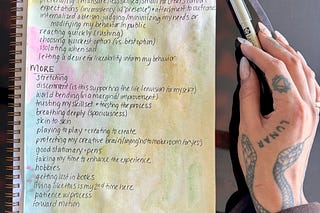 expectations (inconsistency w/ presence) + attachment to outcome
internalized ableism - judging/minimizing my needs or
modifying my behavior in public
reacting quickly (rushing)
choosing quickest option (vs. best option)
isolating when sad
letting a desire for likeability inform my behavior
MORE
stretching
discernment (is this supporting the life I envision for myself?)
world blending for a marginal improvement)
trusting my skillset + trusting the process
breathing deeply (spaciousness)
skin to skin
playing to play + creating to create
protecting my creative brain (saying no to make room for yes)
good stationary + pens
taking my time to enhance the experience
hobbies
getting lost in books
living like this is my time here
patience w/ process
forward motion
LUNAR